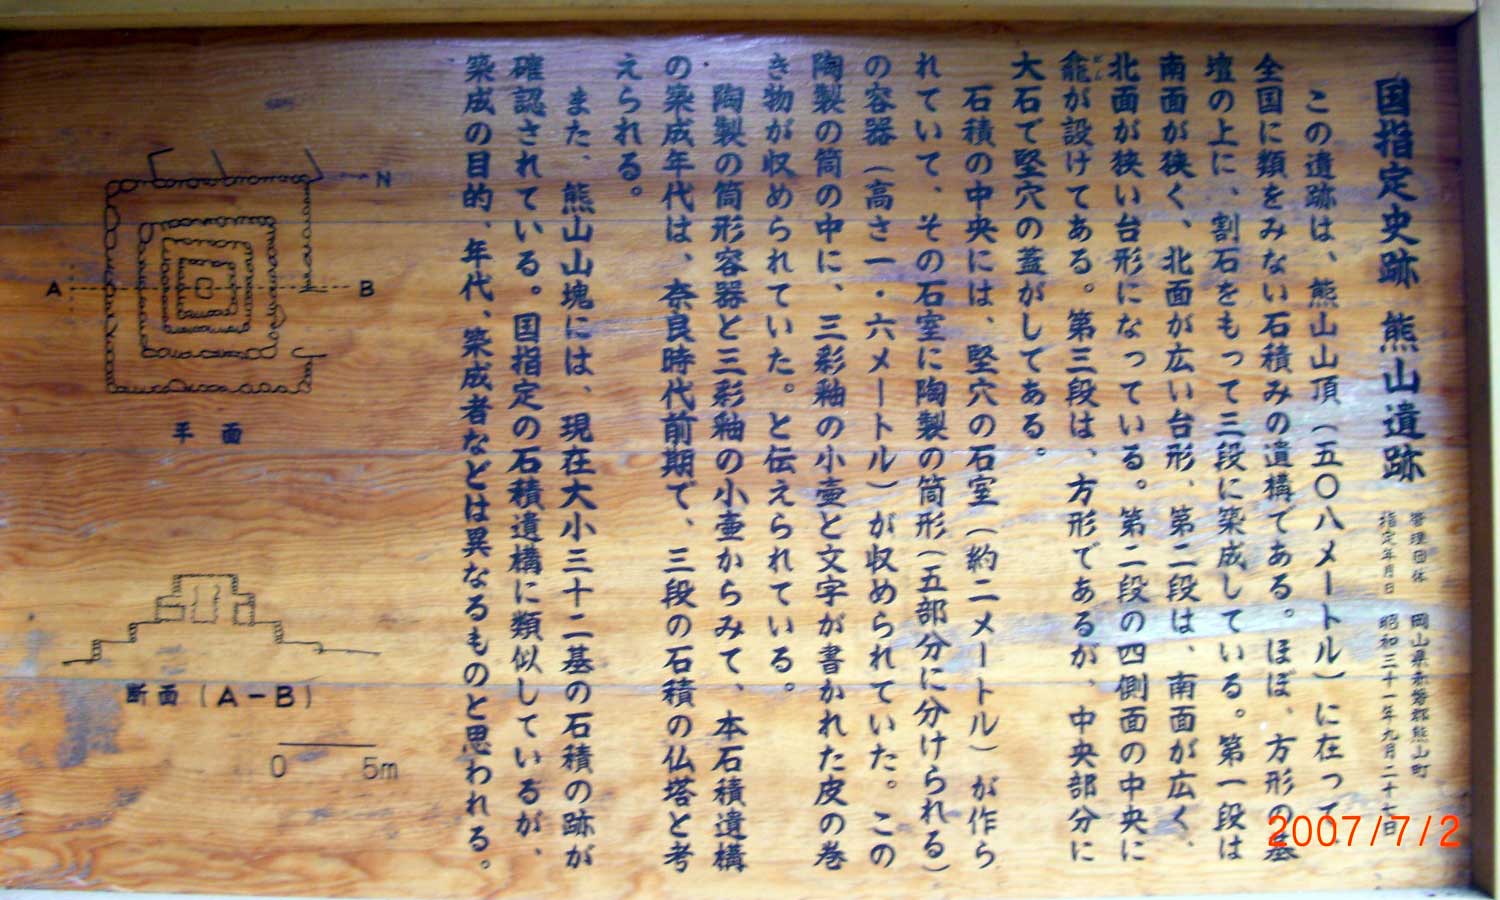 国指定史跡 熊山遺跡
管理団体 岡山県赤磐郡熊山町
指定年月日 昭和三十一年九月二十七日
この遺跡は、熊山山頂(五〇八メートル)に在って、
全国に類をみない石積みの遺構である。ほぼ、方形の基
壇の上に、割石をもって三段に築成している。第一段は
南面が狭く、北面が広い台形、第二段は、南面が広く、
北面が狭い台形になっている。第二段の四側面の中央に
龕が設けてある。第三段は、方形であるが、中央部分に
大石で竪穴の蓋がしてある。
石積の中央には、竪穴の石室(約二メートル)が作ら
れていて、その石室に陶製の筒形(五部分に分けられる)
の容器(高さ一・六メートル)が収められていた。この
陶製の筒の中に、三彩釉の小壷と文字が書かれた皮の巻
き物が収められていた。と伝えられている。
陶製の筒形容器と三彩釉の小壷からみて、本石積遺構
の築成年代は、奈良時代前期で、三段の石積の仏塔と考
えられる。
また、熊山山塊には、現在大小三十二基の石積の跡が
確認されている。国指定の石積遺構に類似しているが、
築成の目的、年代、築成者などは異なるものと思われる。
N
A
B
平面
断面(A-B)
0 5m
2007/7/2